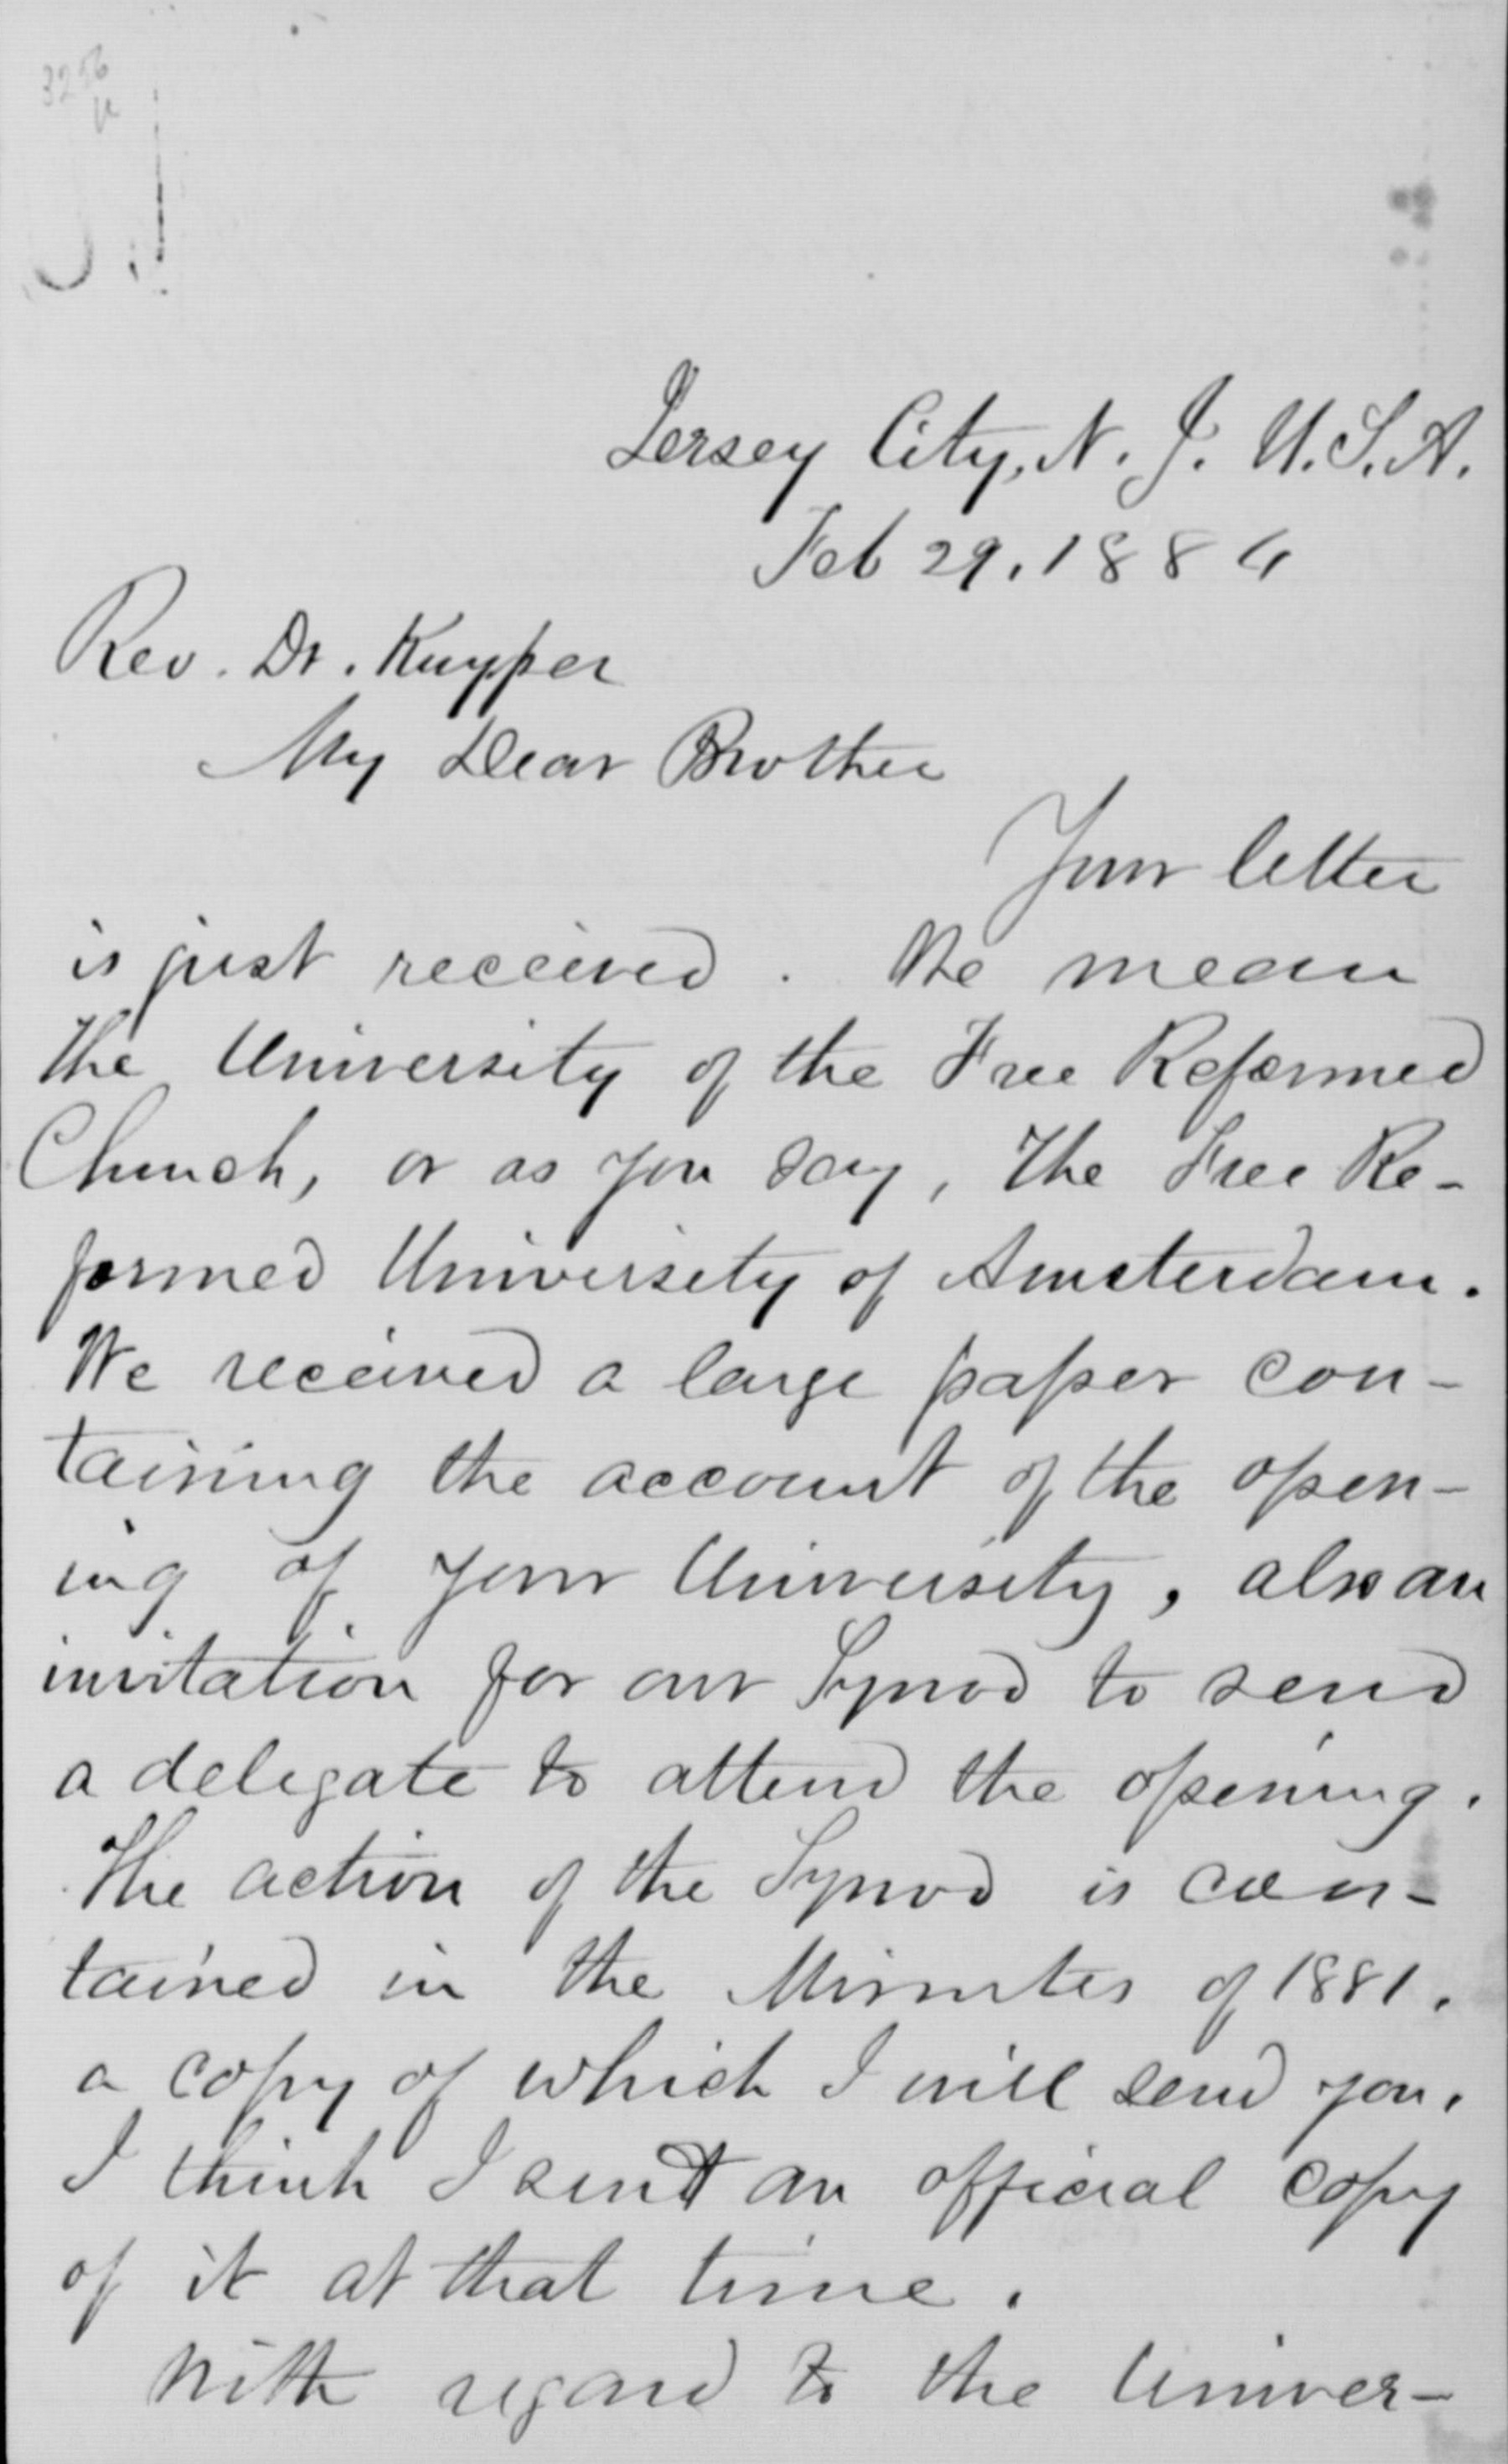 3256
Jersey City, N. J. U. S. A.
Feb 29. 1884
Rev. Dr. Kuyper
My Dear Brother
Your letter
is just received. We mean
the University of the Free Reformed
Church, or as you say, the Free Re-
formed University of Amsterdam.
We received a large paper con-
taining the account of the open-
ing of your University, also an
invitation for our Synod to send
a delegate to attend the opening.
The action of the Synod is con-
tained in the Minutes of 1881.
a copy of which I will send you.
I think I sent an official copy
of it at that time.
With regard to the Univer-